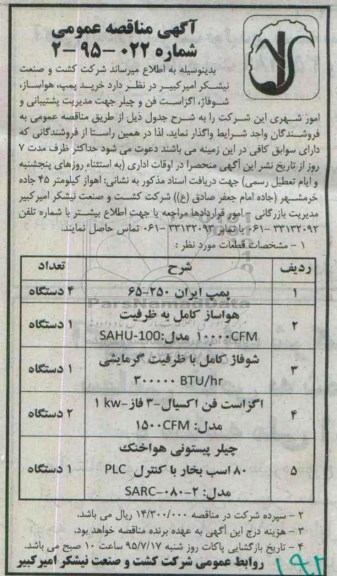 آگهی مناقصه عمومی
شماره ۰۲۲-۹۵-۲
بدینوسیله به اطلاع میرساند شرکت کشت و صنعت
نیشکر امیرکبیر در نظر دارد خرید پمپ، هواساز،
شوفاژ، اگزاست فن و چیلر جهت مدیریت پشتیبانی و
امور شهری این شرکت را به شرح جدول ذیل از طریق مناقصه عمومی به
فروشندگان واجد شرایط واگذار نماید، لذا در همین راستا از فروشندگانی که
دارای سوابق کافی در این زمینه می باشند دعوت می شود حداکثر ظرف مدت ۷
روز از تاریخ نشر این آگهی منحصرا در اوقات اداری (به استثناء روزهای پنجشنبه
و ایام تعطیل رسمی) جهت دریافت اسناد مذکور به نشانی: اهواز کیلومتر ۴۵ جاده
خرمشهر (جاده امام جعفر صادق (ع)) شرکت کشت و صنعت نیشکر امیرکبیر
مدیریت بازرگانی - امور قراردادها مراجعه یا جهت اطلاع بیشتر با شماره تلفن
۳۳۱۳۲۰۹۲-۰۶۱ یا نمابر ۳۳۱۳۲۰۹۳-۰۶۱ تماس حاصل نمایند.
۱ - مشخصات قطعات مورد نظر :
ردیف شرح تعداد
۱ پمپ ایران ۲۵۰-۶۵ ۴ دستگاه
۲ هواساز کامل به ظرفیت
۱۰۰۰۰CFM مدل: SAHU-100 ۱ دستگاه
۳ شوفاژ کامل با ظرفیت گرمایشی
۳۰۰۰۰۰ BTU/hr ۱ دستگاه
۴ اگزاست فن اکسیال-۳ فاز-۱ kw
مدل: ۱۵۰۰CFM ۲ دستگاه
۵ چیلر پیستونی هواخنک
۸۰ اسب بخار با کنترل PLC ۱ دستگاه
مدل: SARC-۰۸۰-۲
۲ - سپرده شرکت در مناقصه ۱۴/۳۰۰/۰۰۰ ریال می باشد.
۳ - هزینه درج این آگهی به عهده برنده مناقصه خواهد بود.
۴ - تاریخ بازگشایی پاکات روز شنبه ۹۵/۷/۱۷ ساعت ۱۰ صبح می باشد.
روابط عمومی شرکت کشت و صنعت نیشکر امیرکبیر